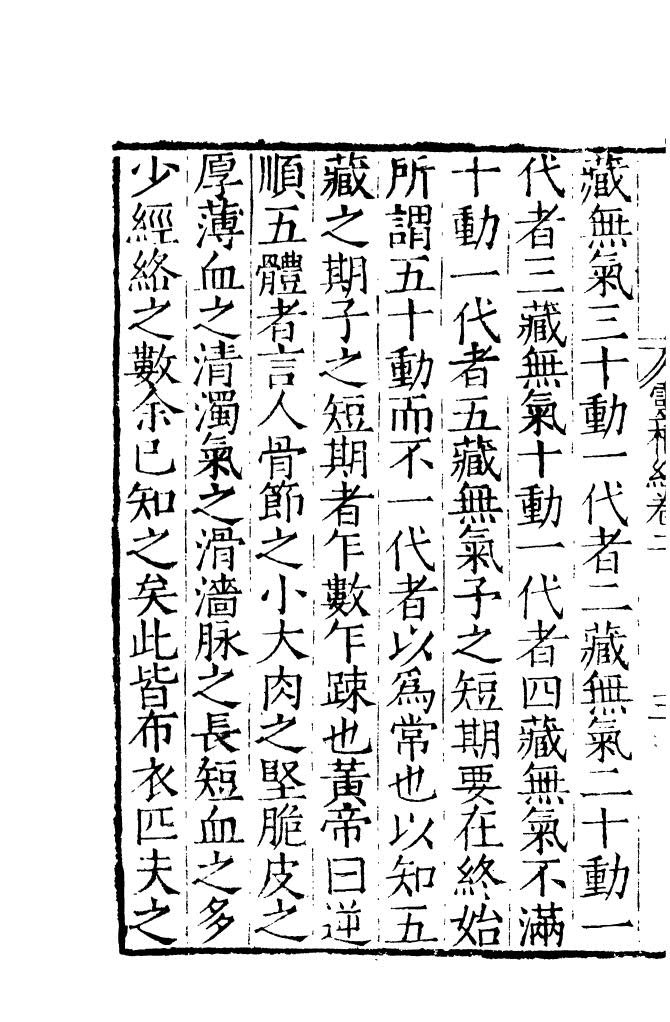 藏無氣三十動一代者二藏無氣二十動一
代者三藏無氣十動一代者四藏無氣不滿
十動一代者五藏無氣予之短期要在終始
所謂五十動而不一代者以爲常也以知五
藏之期予之短期者乍數乍踈也黃帝曰逆
順五體者言人骨節之小大肉之堅脆皮之
厚薄血之清濁氣之滑濇脉之長短血之多
少經絡之數余已知之矣此皆布衣匹夫之